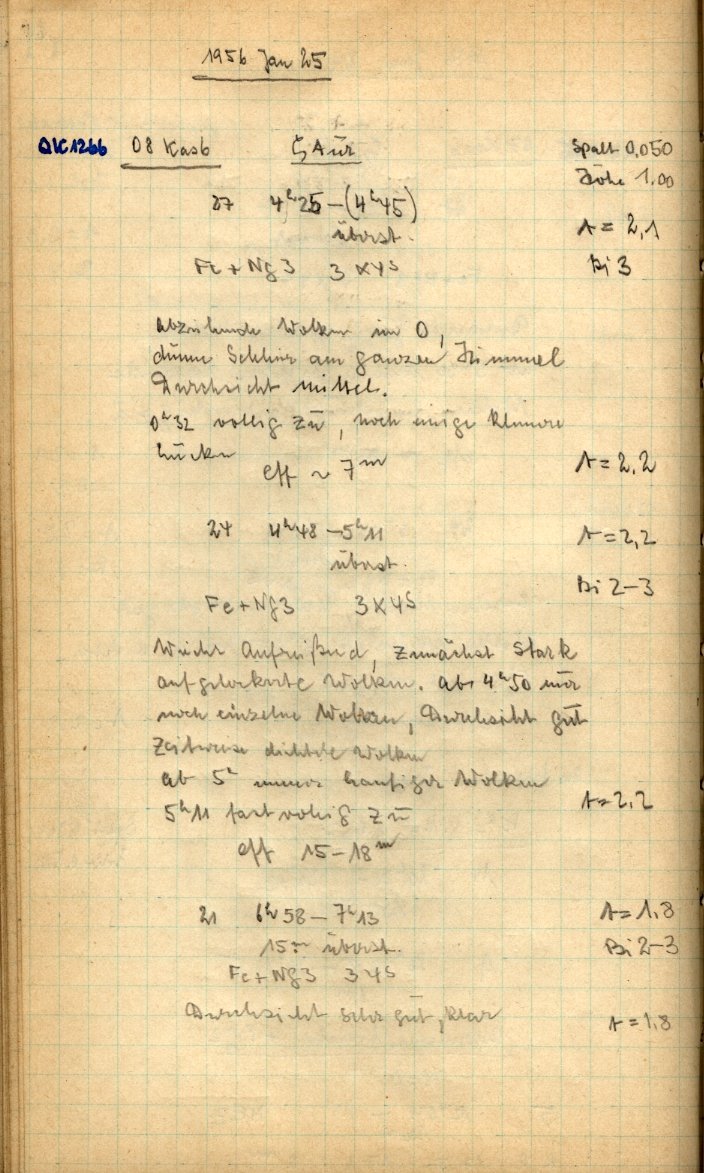 1956 Jan 25
QK1266 08 Kasb ζ Aur Spalt 0,050
Höhe 1,00
27 4h25 – (4h45)
A = 2,1
überst.
Fe + Ng3 3 x 4s Bi 3
Abziehende Wolken im O,
dünne Schlier am ganzen Himmel
Durchsicht mittel.
0h32 vollig zu, noch einige kleinere
Lücken A = 2,2
eff ~ 7m
24 4h48 – 5h11 A = 2,2
überst.
Bi 2–3
Fe + Ng3 3 x 4s
Wieder Aufreißend, zunächst stark
aufgelockerte Wolken. ab 4h50 nur
noch einzelne Wolken, Durchsicht gut
Zeitweise dichtere Wolken
ab 5h immer häufiger Wolken
A = 2,2
5h11 fast vollig zu
eff 15–18m
21 6h58 – 7h13 A = 1,8
15m überst. Bi 2–3
Fe + Ng3 3 4s
Durchsicht sehr gut, klar
A = 1,8